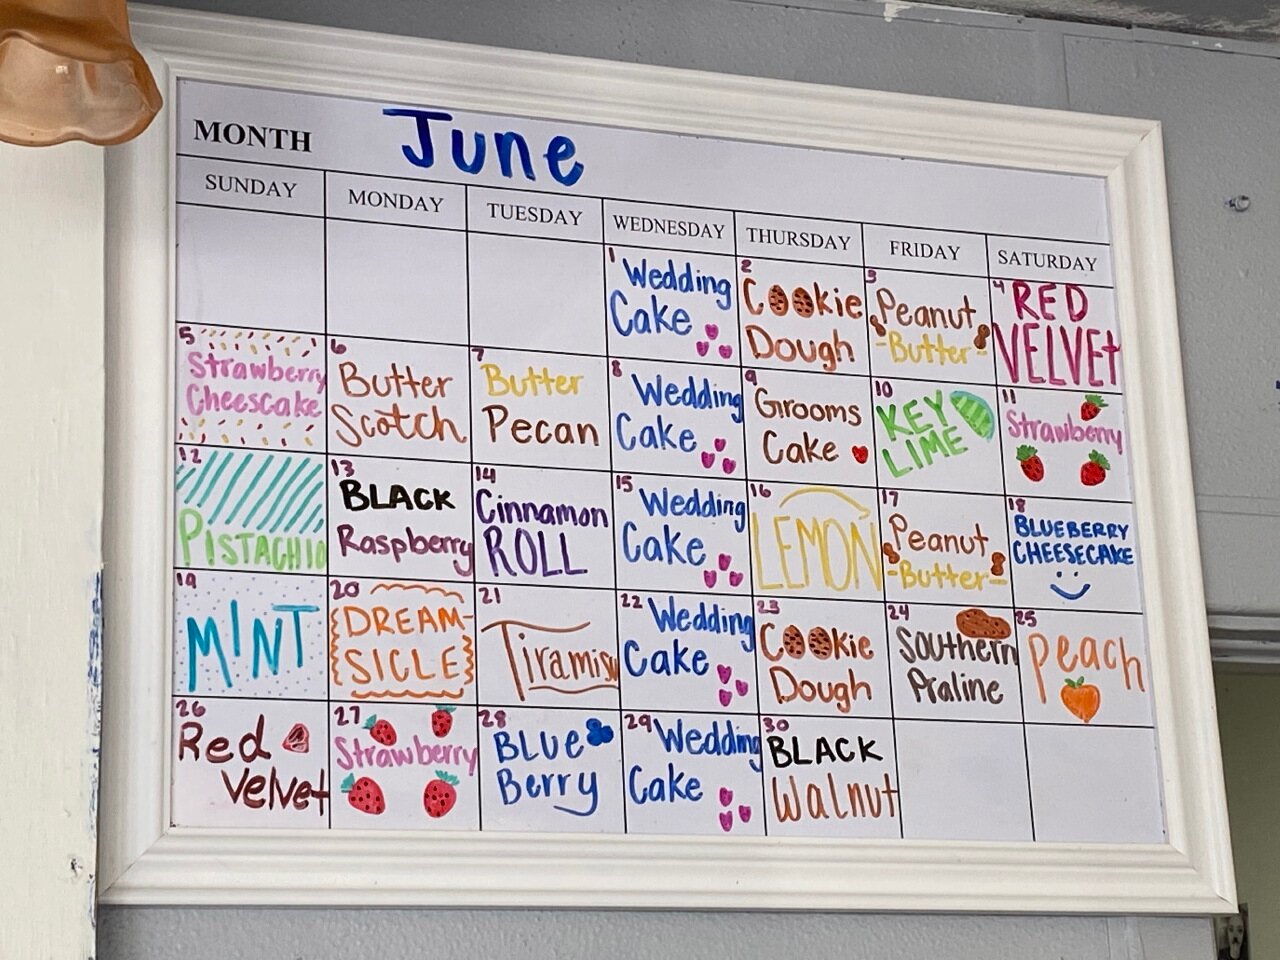 MONTH June
SUNDAY MONDAY TUESDAY WEDNESDAY THURSDAY FRIDAY SATURDAY
1 Wedding Cake
2 Cookie Dough
3 Peanut -Butter-
4 RED VELVEt
5 Strawberry Cheescake
6 Butter Scotch
7 Butter Pecan
8 Wedding Cake
9 Grooms Cake
10 KEY LIME
11 Strawberry
12 PISTACHIO
13 BLACK Raspberry
14 Cinnamon ROLL
15 Wedding Cake
16 LEMON
17 Peanut -Butter-
18 BLUEBERRY CHEESECAKE
19 MINT
20 DREAM- SICLE
21 Tiramisu
22 Wedding Cake
23 Cookie Dough
24 Southern Praline
25 Peach
26 Red Velvet
27 Strawberry
28 BLUE Berry
29 Wedding Cake
30 BLACK Walnut